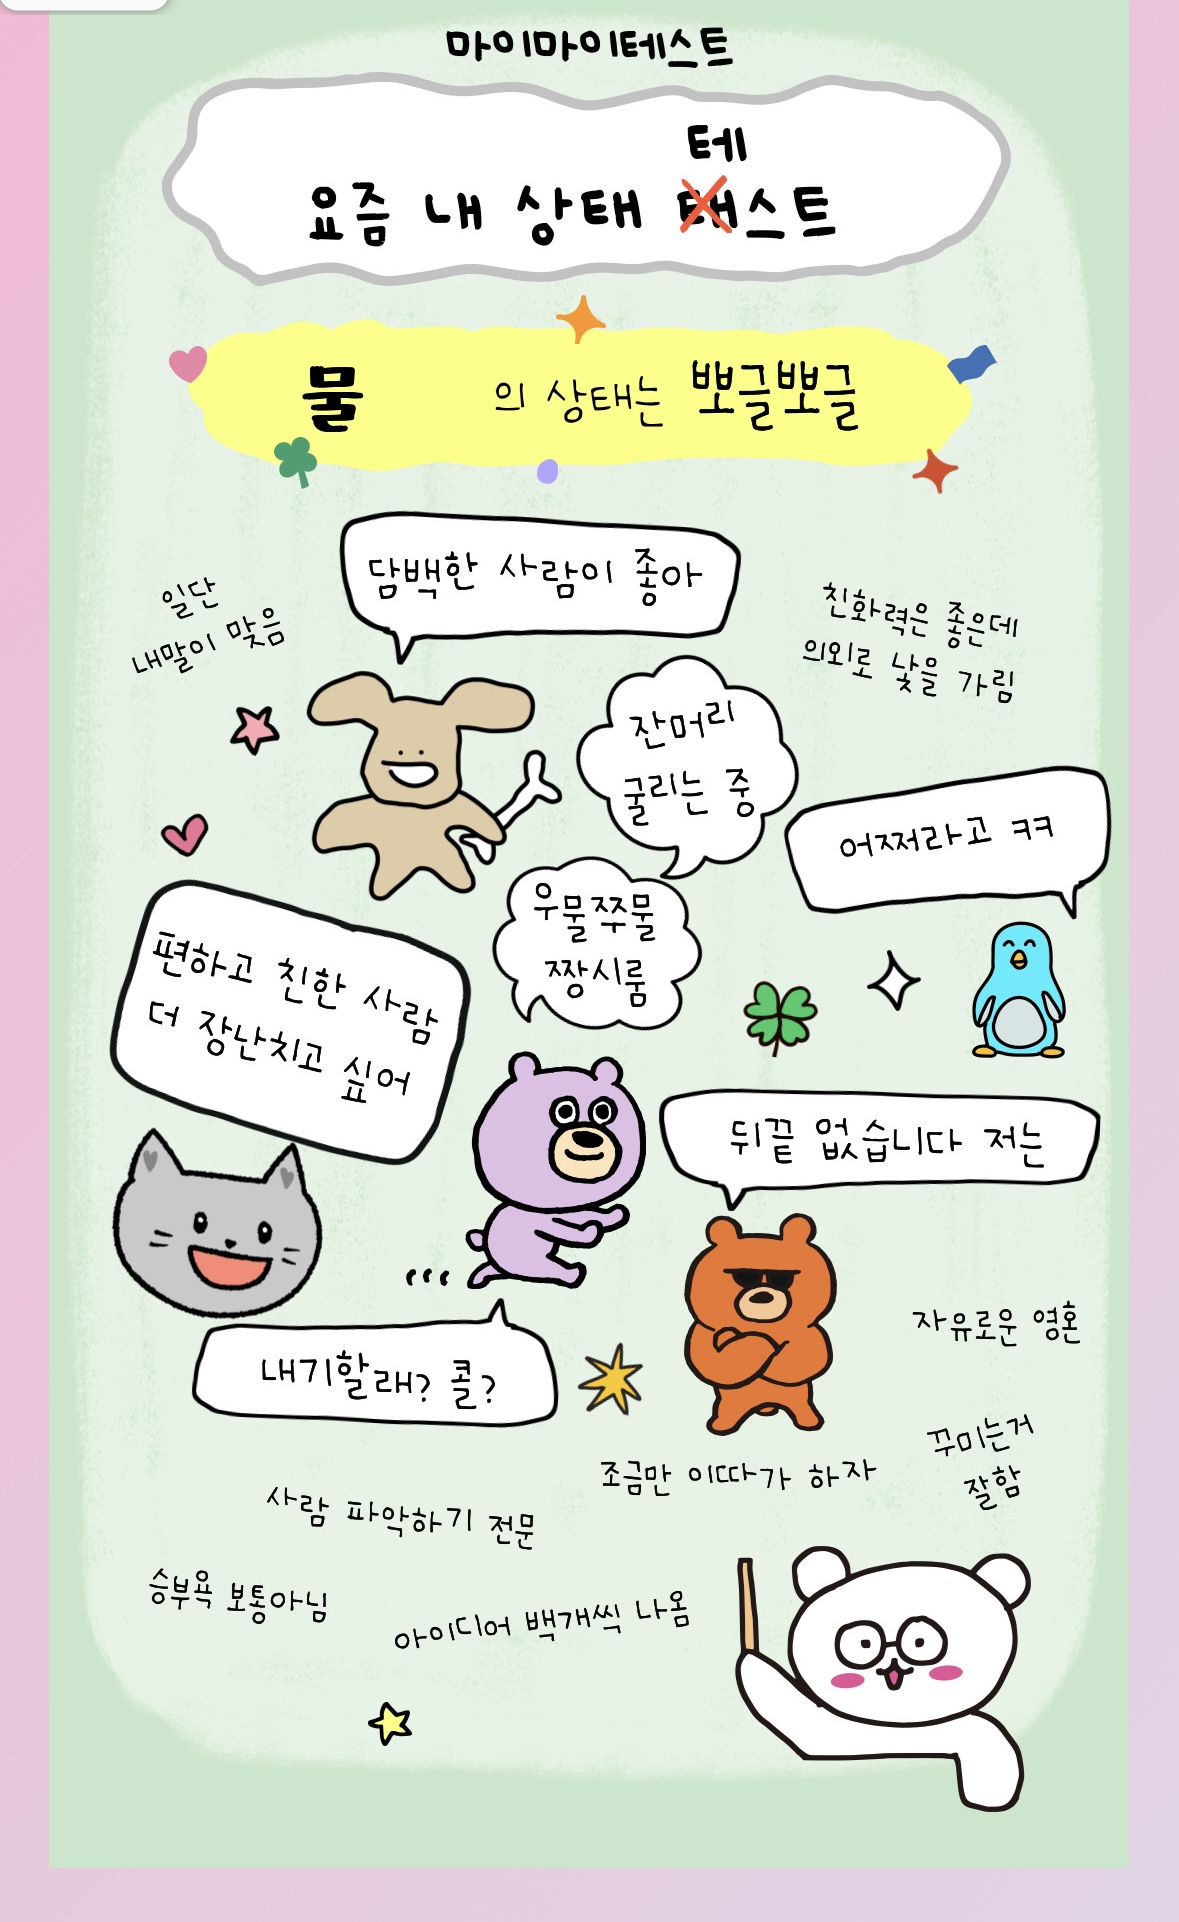 마이마이테스트
테
요즘 내 상태 태스트
물 의 상태는 뽀글뽀글
담백한 사람이 좋아
일단
내말이 맞음
친화력은 좋은데
의외로 낯을 가림
잔머리
굴리는 중
어쩌라고 ㅋㅋ
우물쭈물
짱시룸
편하고 친한 사람
더 장난치고 싶어
뒤끝 없습니다 저는
내기할래? 콜?
자유로운 영혼
꾸미는거
잘함
조금만 이따가 하자
사람 파악하기 전문
승부욕 보통아님
아이디어 백개씩 나옴